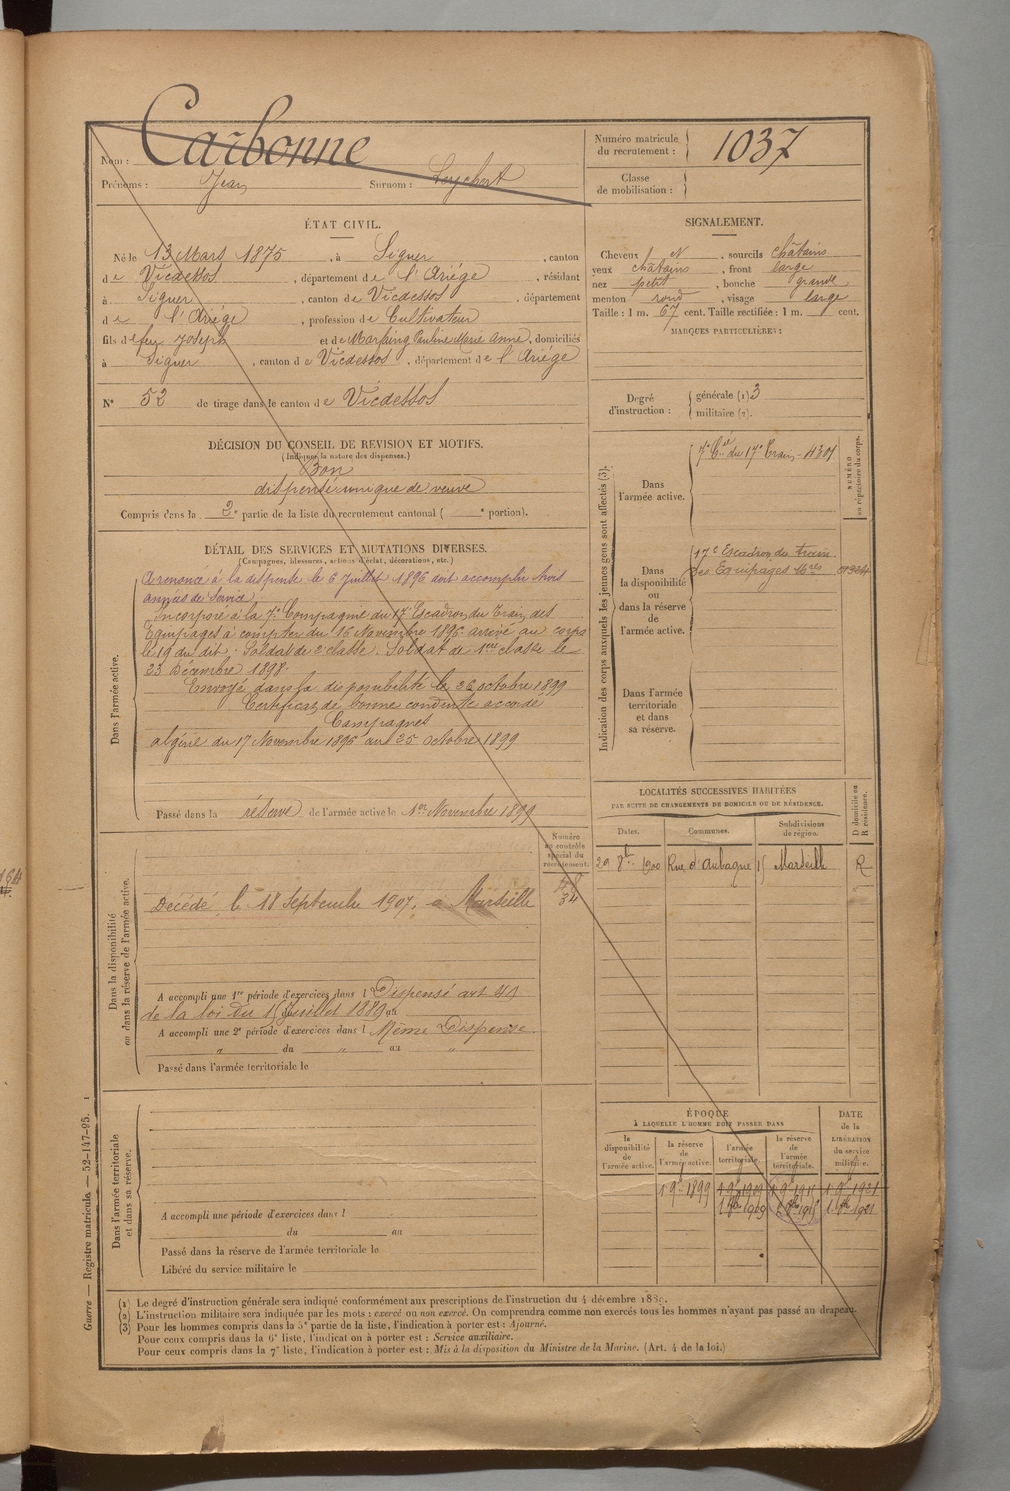 Nom : Carbonne
Prénoms : Jean Surnom :
Numéro matricule du recrutement : 1037
Classe de mobilisation :
ÉTAT CIVIL.
Né le 13 Mars 1875, à Siguer, canton
de Vicdessos, département de l'Ariége, résidant
à Siguer, canton de Vicdessos, département
de l'Ariége, profession de Cultivateur
fils de feu Joseph et de Marfaing Pauline Marie Anne, domiciliés
à Siguer, canton de Vicdessos, département de l'Ariége
N° 52 de tirage dans le canton de Vicdessos
SIGNALEMENT.
Cheveux N, sourcils châtains
yeux châtains, front large
nez petit, bouche grande,
menton rond, visage large
Taille : 1 m. 67 cent. Taille rectifiée : 1 m. cent.
MARQUES PARTICULIÈRES :
Degré d'instruction : générale (1) 3
militaire (2).
DÉCISION DU CONSEIL DE REVISION ET MOTIFS.
(Indiquer la nature des dispenses.)
Bon
dispensé unique de veuve
Compris dans la 2e partie de la liste du recrutement cantonal ( e portion).
DÉTAIL DES SERVICES ET MUTATIONS DIVERSES.
(Campagnes, blessures, actions d'éclat, décorations, etc.)
Dans l'armée active.
A renoncé à la dispense le 6 juillet 1896 doit accomplir trois
années de service
Incorporé à la 7e Compagnie du 17e Escadron du Train des
Equipages à compter du 16 Novembre 1896 arrivé au corps
le 19 du dit. Soldat de 2e classe. Soldat de 1ere classe le
23 Décembre 1898.
Envoyé dans la disponibilité le 26 octobre 1899
Certificat de bonne conduite accordé
Campagnes
algérie du 17 Novembre 1896 au 25 octobre 1899
Passé dans la réserve de l'armée active le 1er Novembre 1899
Indication des corps auxquels les jeunes gens sont affectés (3).
NUMÉRO au répertoire du corps.
Dans l'armée active.
7e Cie du 17e Train - 4301
Dans la disponibilité ou dans la réserve de l'armée active.
17e Escadron du train
des Equipages Mres
Dans l'armée territoriale et dans sa réserve.
LOCALITÉS SUCCESSIVES HABITÉES
PAR SUITE DE CHANGEMENTS DE DOMICILE OU DE RÉSIDENCE.
D domicile ou R résidence.
Dates. Communes. Subdivisions de région.
29 8bre 1900 Rue d'Aubagne 15 Marseille R
Numéro au contrôle spécial du recrutement.
Dans la disponibilité ou dans la réserve de l'armée active.
Décédé le 18 Septembre 1907, à Marseille
A accompli une 1re période d'exercices dans l Dispensé art 49
de la loi du 15 Juillet 1889 au
A accompli une 2e période d'exercices dans l Même Dispense
" du " au "
Passé dans l'armée territoriale le
ÉPOQUE
À LAQUELLE L'HOMME DOIT PASSER DANS
DATE de la LIBÉRATION du service militaire.
la disponibilité de l'armée active.
la réserve de l'armée active.
l'armée territoriale.
la réserve de l'armée territoriale.
1 9bre 1899
Dans l'armée territoriale et dans sa réserve.
A accompli une période d'exercices dans l
du au
Passé dans la réserve de l'armée territoriale le
Libéré du service militaire le
(1) Le degré d'instruction générale sera indiqué conformément aux prescriptions de l'instruction du 4 décembre 1889.
(2) L'instruction militaire sera indiquée par les mots : exercé ou non exercé. On comprendra comme non exercés tous les hommes n'ayant pas passé au drapeau.
(3) Pour les hommes compris dans la 5e partie de la liste, l'indication à porter est : Ajourné.
Pour ceux compris dans la 6e liste, l'indication à porter est : Service auxiliaire.
Pour ceux compris dans la 7e liste, l'indication à porter est : Mis à la disposition du Ministre de la Marine. (Art. 4 de la loi.)
Guerre — Registre matricule. — 52-147-95.